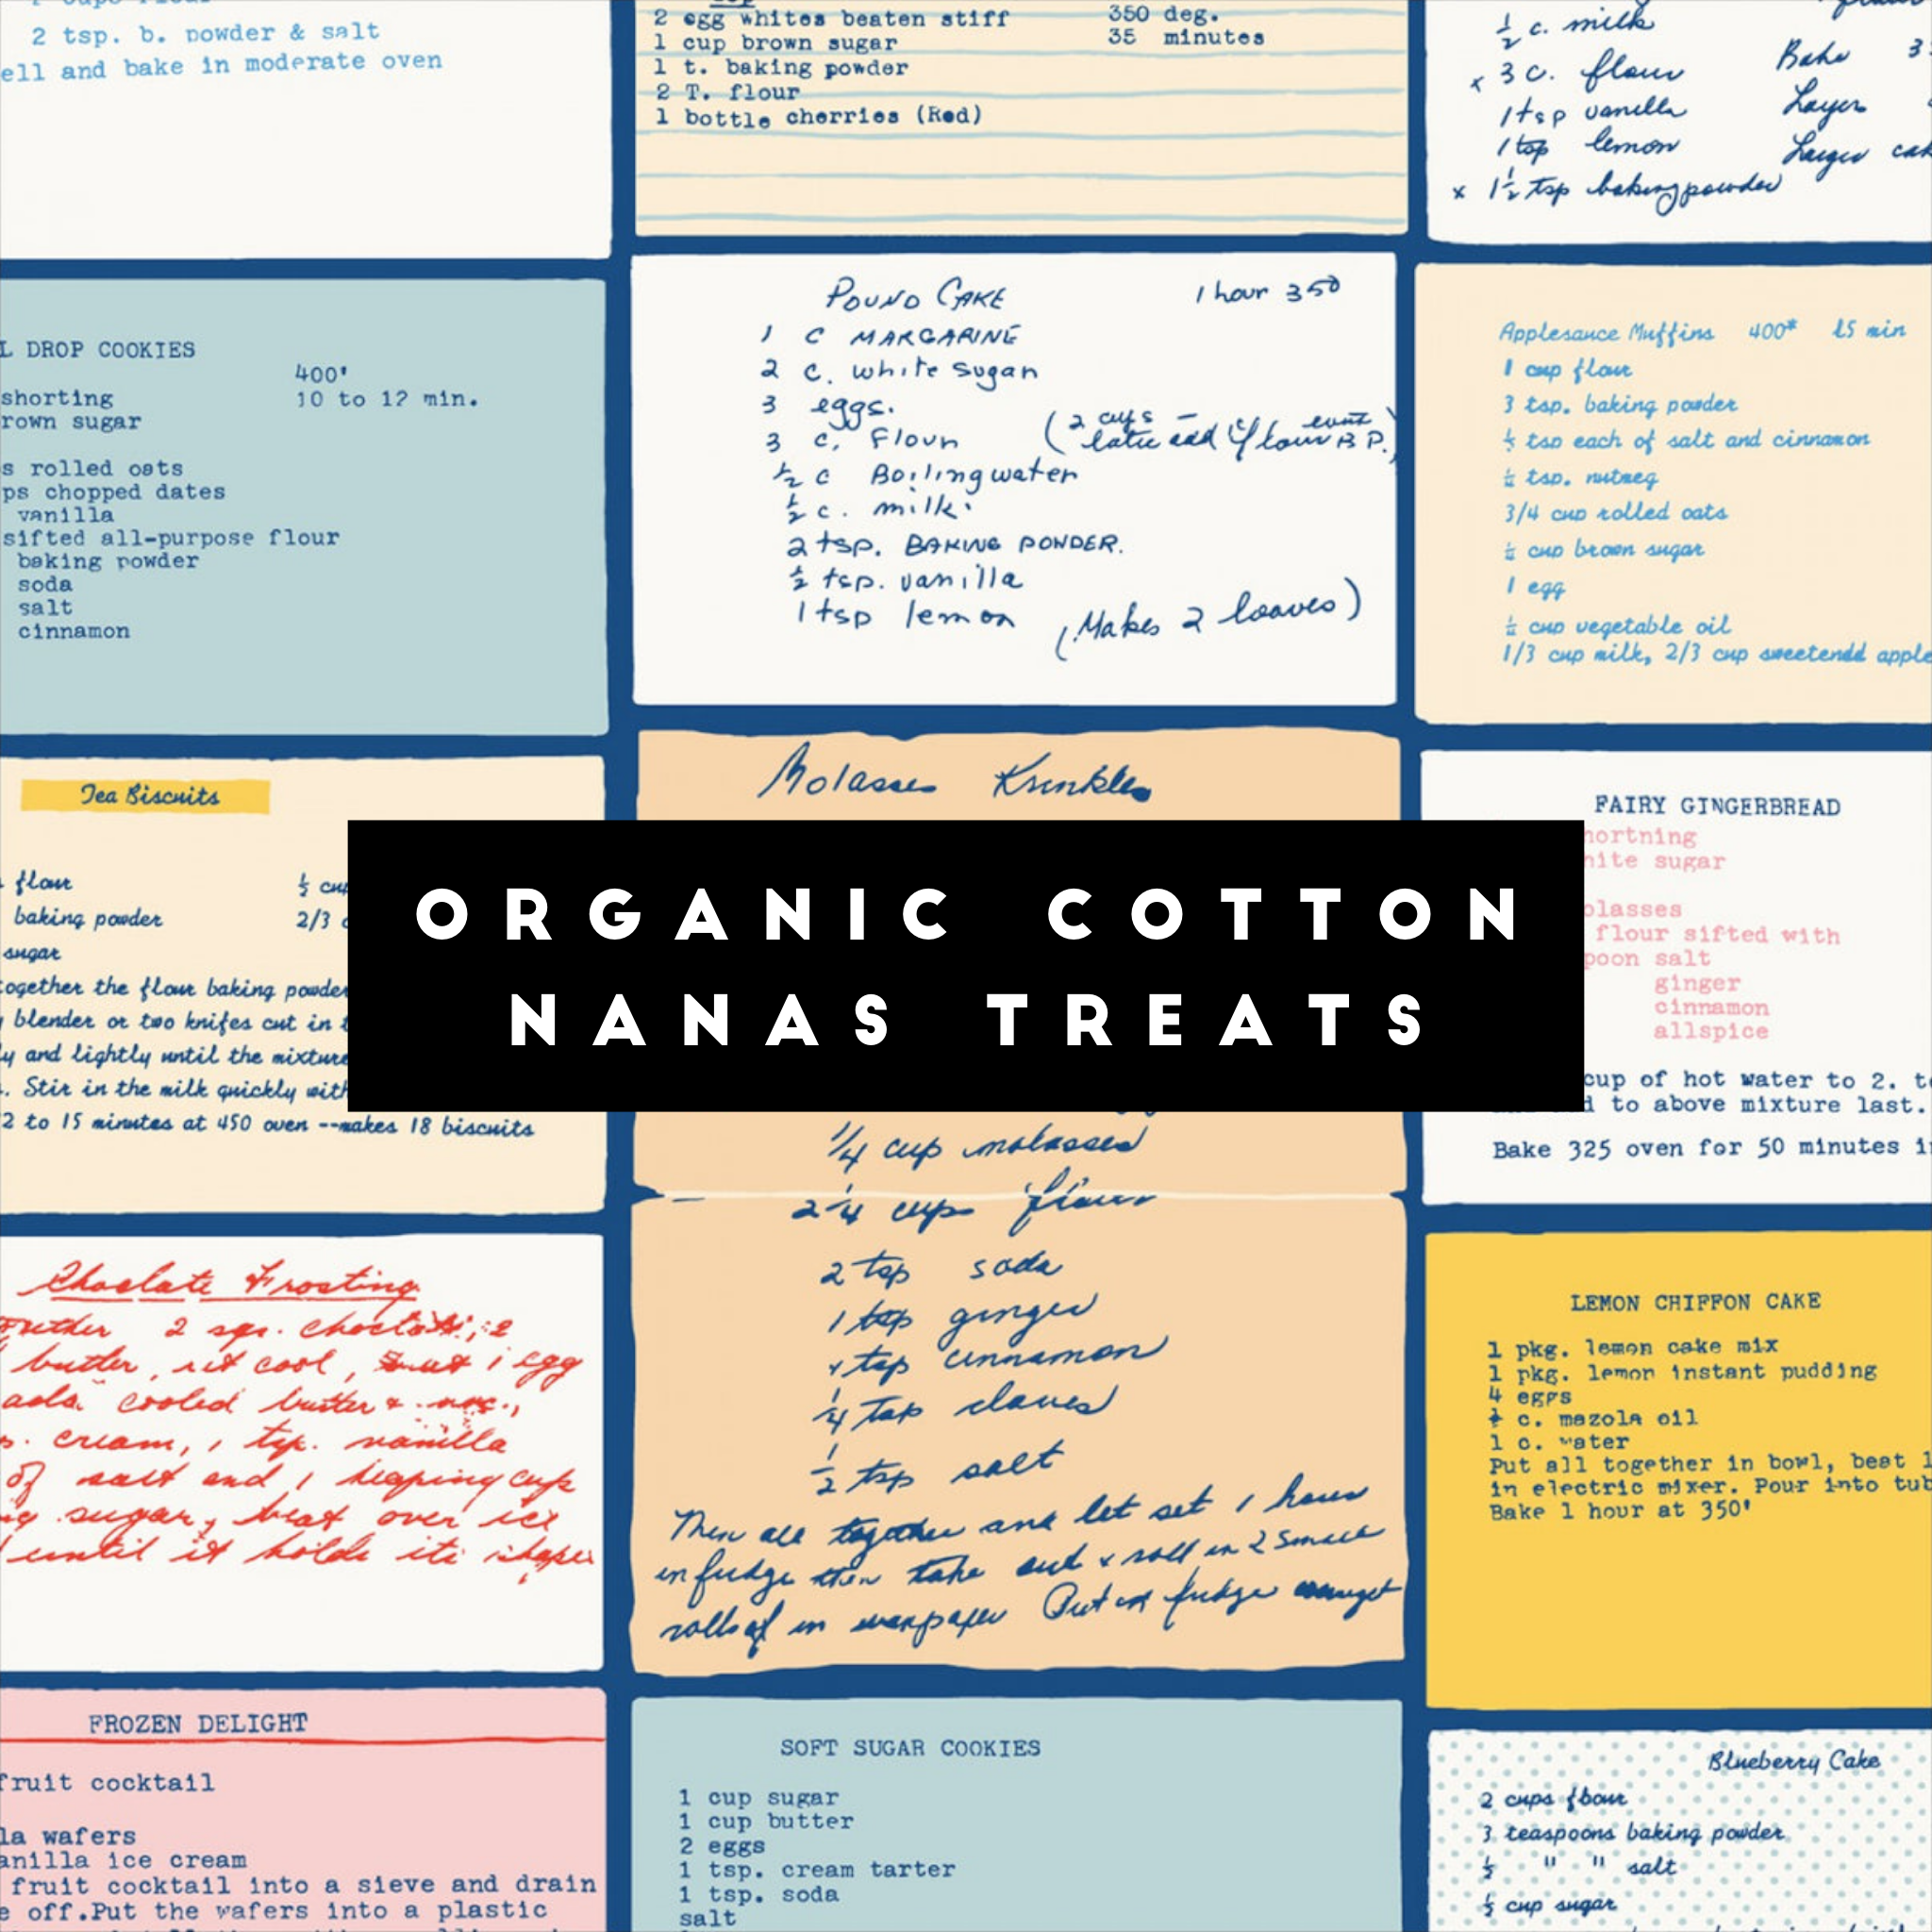 2 tsp. b. powder & salt
ell and bake in moderate oven
2 egg whites beaten stiff 350 deg.
1 cup brown sugar 35 minutes
1 t. baking powder
2 T. flour
1 bottle cherries (Red)
½ c. milk
x 3 c. flour Bake 3
1 tsp vanilla Layer
1 tsp lemon Larger cak
x 1½ tsp baking powder
L DROP COOKIES
400'
shorting 10 to 12 min.
rown sugar
s rolled oats
ps chopped dates
vanilla
sifted all-purpose flour
baking powder
soda
salt
cinnamon
POUND CAKE 1 hour 350
1 C MARGARINE
2 c. white sugar
3 eggs.
3 c. Flour (2 cups
B P.)
½ c Boiling water
½ c. milk
2 tsp. BAKING POWDER.
½ tsp. vanilla
1 tsp lemon (Makes 2 loaves)
Applesauce Muffins 400° 15 min
1 cup flour
3 tsp. baking powder
tsp each of salt and cinnamon
tsp. nutmeg
3/4 cup rolled oats
cup brown sugar
1 egg
cup vegetable oil
1/3 cup milk, 2/3 cup sweetendd apple
Tea Biscuits
flour
baking powder 2/3 c
sugar
together the flour baking powder
blender or two knifes cut in t
ly and lightly until the mixture
. Stir in the milk quickly with
2 to 15 minutes at 450 oven --makes 18 biscuits
Molasses Krinkles
ORGANIC COTTON
NANAS TREATS
1/4 cup molasses
2 1/4 cups flour
2 tsp soda
1 tsp ginger
1 tsp cinnamon
1/4 tsp cloves
1/2 tsp salt
all together and let set 1 hour
in fudge then take out & roll in 2 small
rolls in waxpaper Put in fudge
FAIRY GINGERBREAD
hortning
hite sugar
olasses
flour sifted with
poon salt
ginger
cinnamon
allspice
cup of hot water to 2. t
d to above mixture last.
Bake 325 oven for 50 minutes i
Choclate Frosting
2 sqs.
butter, let cool, 1 egg
cooled butter &
cream, 1 tsp. vanilla
of salt and 1 heaping cup
sugar, beat over ice
until it holds its shape
LEMON CHIFFON CAKE
1 pkg. lemon cake mix
1 pkg. lemon instant pudding
4 eggs
c. mazola oil
1 c. water
Put all together in bowl, beat 1
in electric mixer. Pour into tub
Bake 1 hour at 350'
FROZEN DELIGHT
fruit cocktail
la wafers
anilla ice cream
fruit cocktail into a sieve and drain
e off.Put the wafers into a plastic
SOFT SUGAR COOKIES
1 cup sugar
1 cup butter
2 eggs
1 tsp. cream tarter
1 tsp. soda
salt
Blueberry Cake
2 cups flour
3 teaspoons baking powder
½ " " salt
cup sugar